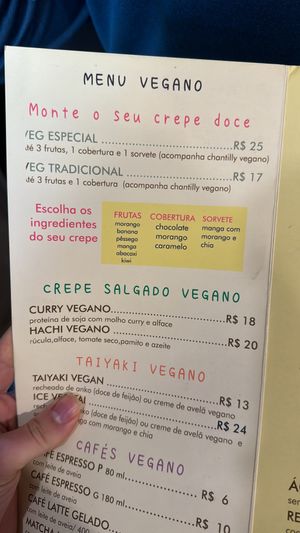 MENU VEGANO
Monte o seu crepe doce
VEG ESPECIAL R$ 25
até 3 frutas, 1 cobertura e 1 sorvete (acompanha chantilly vegano)
VEG TRADICIONAL R$ 17
até 3 frutas e 1 cobertura (acompanha chantilly vegano)
Escolha os
ingredientes
do seu crepe
FRUTAS
morango
banana
pêssego
manga
abacaxi
kiwi
COBERTURA
chocolate
morango
caramelo
SORVETE
manga com
morango e
chia
CREPE SALGADO VEGANO
CURRY VEGANO R$ 18
proteína de soja com molho curry e alface
HACHI VEGANO R$ 20
rúcula,alface, tomate seco,pamito e azeite
TAIYAKI VEGANO
TAIYAKI VEGAN R$ 13
recheado de anko (doce de feijão) ou creme de avelã vegano
ICE R$ 24
recheado de anko (doce de feijão) ou creme de avelã vegano e
manga com morango e chia
CAFÉS VEGANO
CAFÉ ESPRESSO P 80 ml R$ 6
com leite de aveia
CAFÉ ESPRESSO G 180 ml R$ 10
com leite de aveia
CAFÉ LATTE GELADO
com leite de aveia/ 400
MATCHA